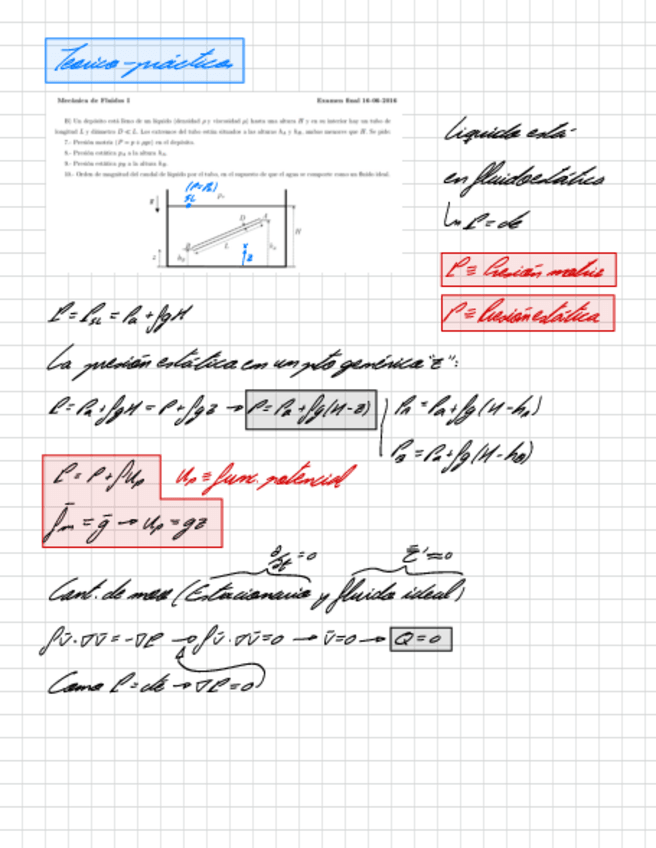 Teórico-práctico
Mecánica de Fluidos I Examen final 16-06-2016
B) Un depósito está lleno de un líquido (densidad ρ y viscosidad μ) hasta una altura H y en su interior hay un tubo de
longitud L y diámetro D ≪ L. Los extremos del tubo están situados a las alturas hA y hB, ambas menores que H. Se pide:
7.- Presión motriz (P = p + ρgz) en el depósito.
8.- Presión estática pA a la altura hA.
9.- Presión estática pB a la altura hB.
10.- Orden de magnitud del caudal de líquido por el tubo, en el supuesto de que el agua se comporte como un fluido ideal.
(P=Pa)
SL
Pa
g
D
A
H
B
L
hA
hB
z
z
Líquido está
en fluidoestática
↳ P = cte
P ≡ Presión motriz
P ≡ Presión estática
P = PSL = Pa + ρgH
La presión estática en un pto genérico "z":
P = Pa + ρgH = P + ρgz → P = Pa + ρg(H-z)
PA = Pa + ρg(H-hA)
PB = Pa + ρg(H-hB)
P = P + ρUp
Up ≡ func. potencial
f̄m = ḡ → Up = gz
∂/∂t = 0
τ̿' ≈ 0
Cant. de mov (Estacionario y fluido ideal)
ρv̄·∇v̄ = -∇P → ρv̄·∇v̄ = 0 → v̄ = 0 → Q = 0
Como P = cte → ∇P = 0